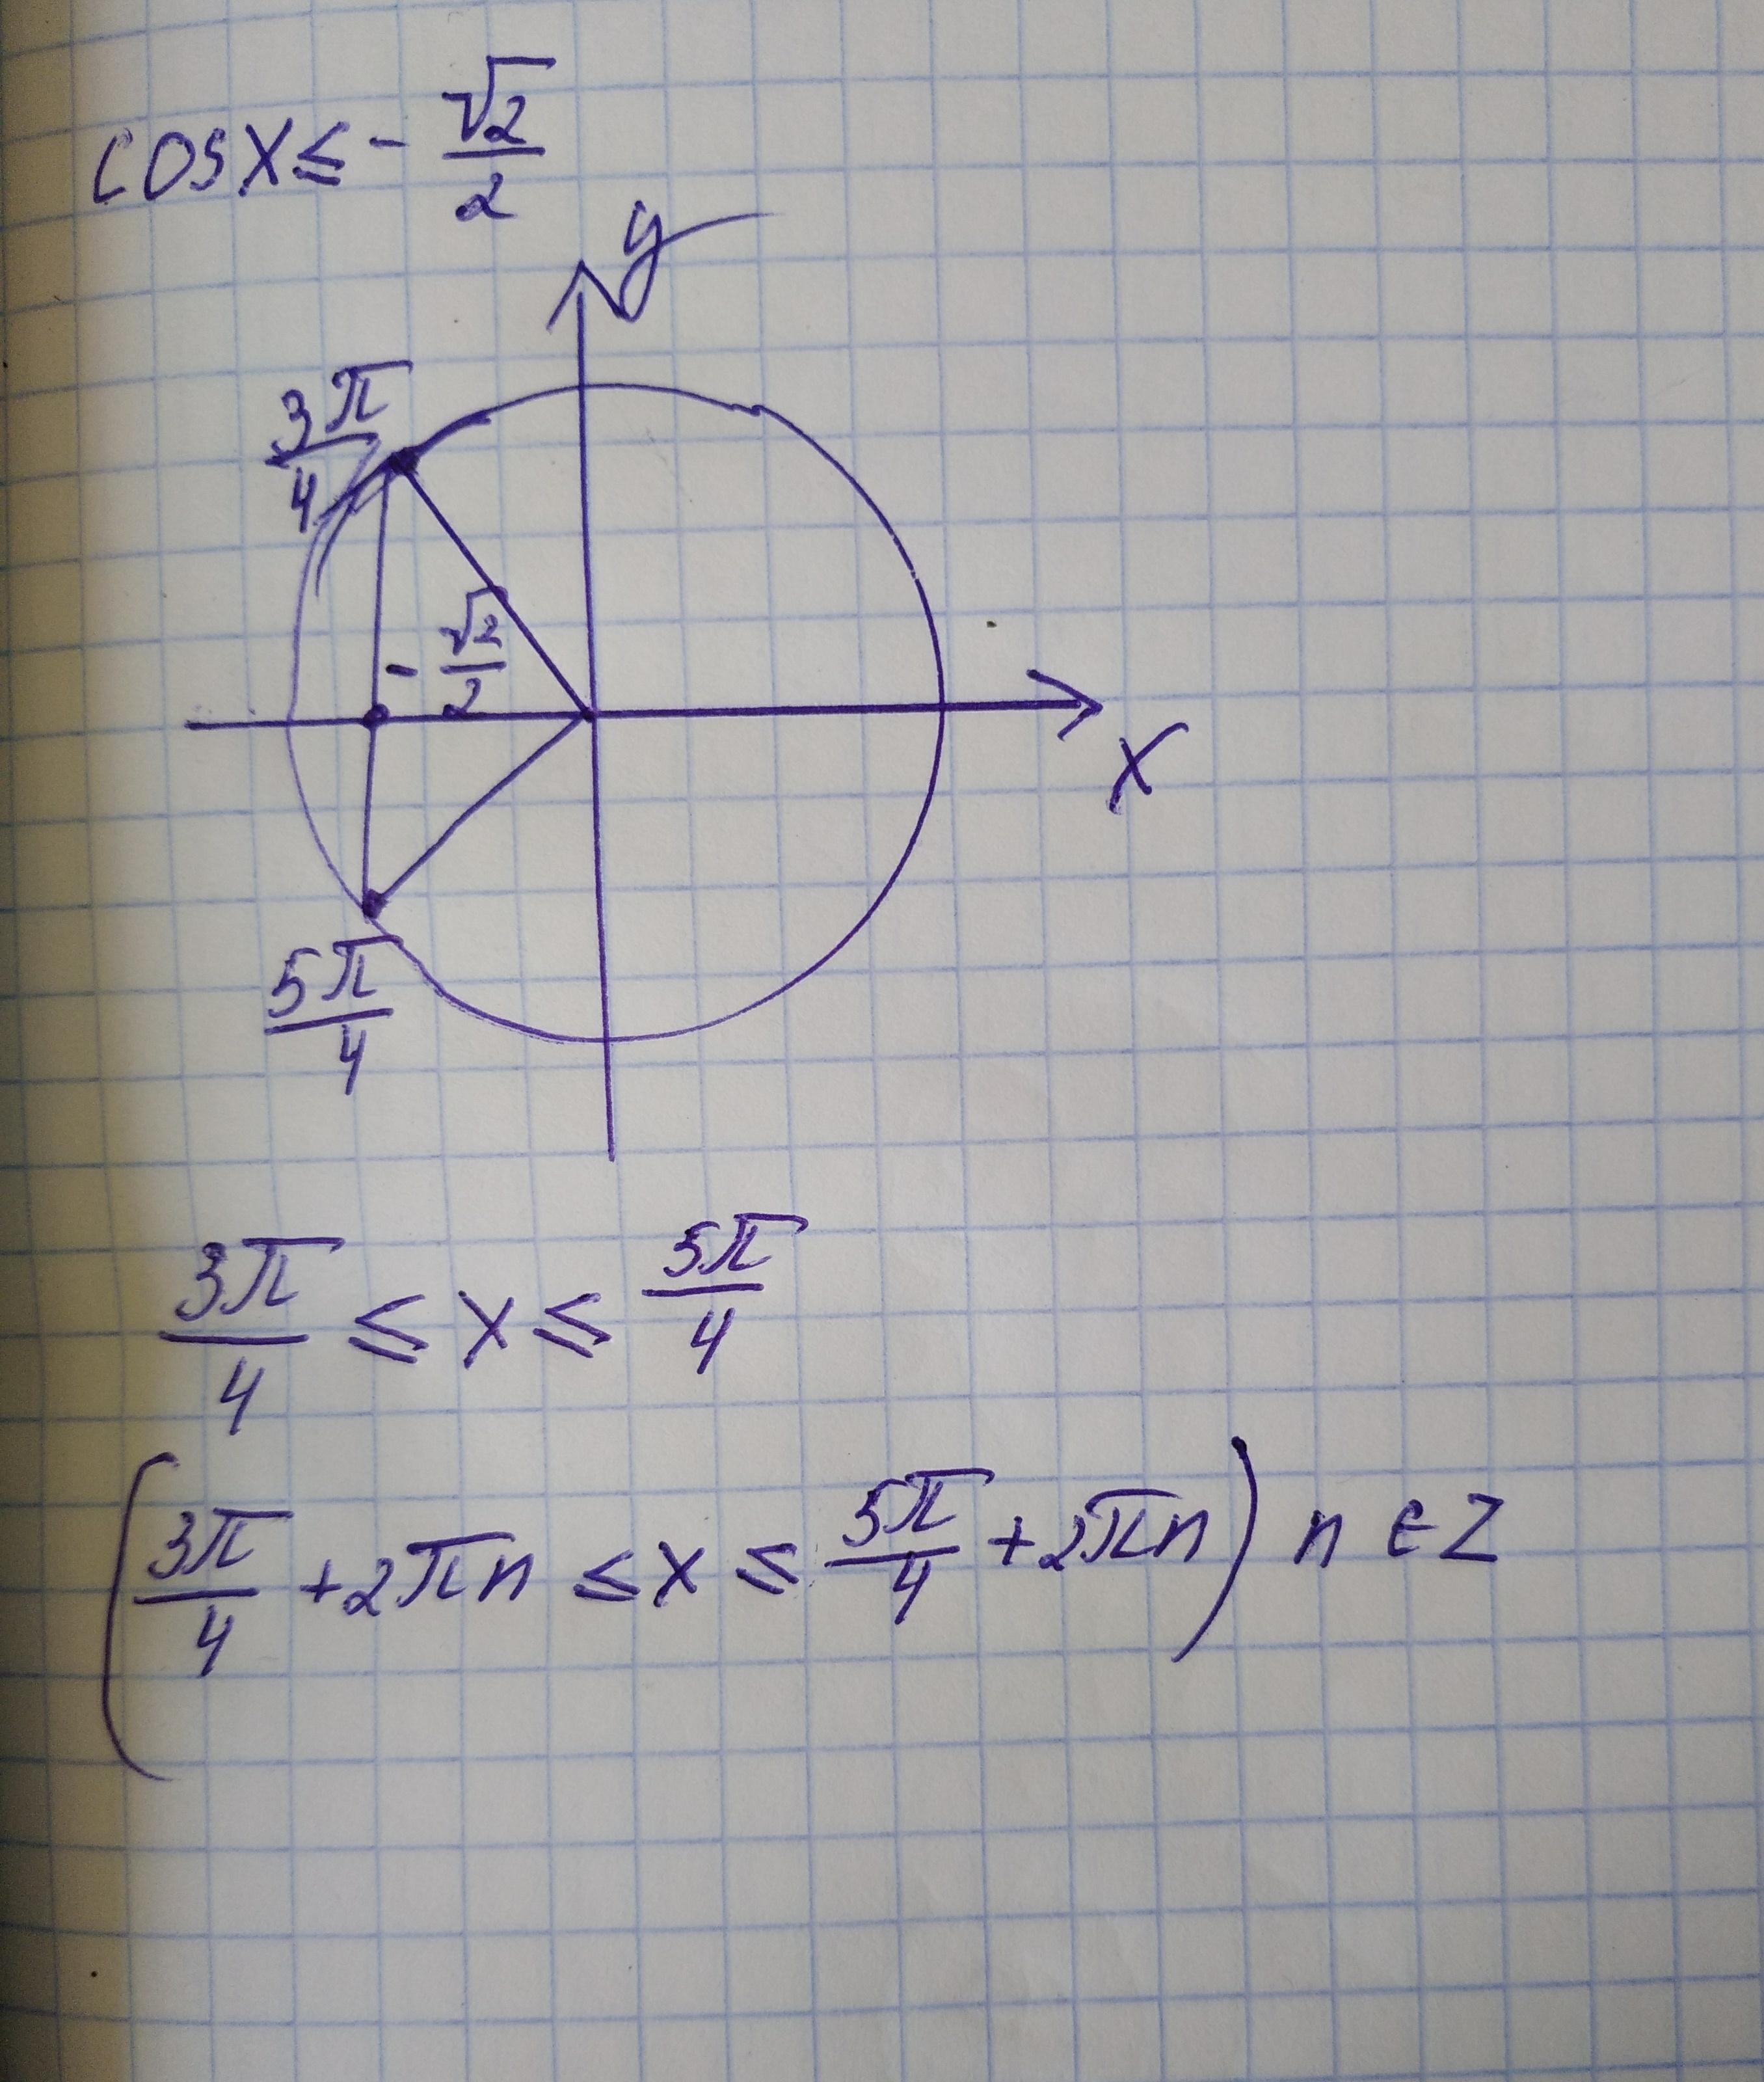 cosx ≤ - √2/2
y
3π/4
- √2/2
x
5π/4
3π/4 ≤ x ≤ 5π/4
(3π/4 + 2πn ≤ x ≤ 5π/4 + 2πn) n ∈ Z